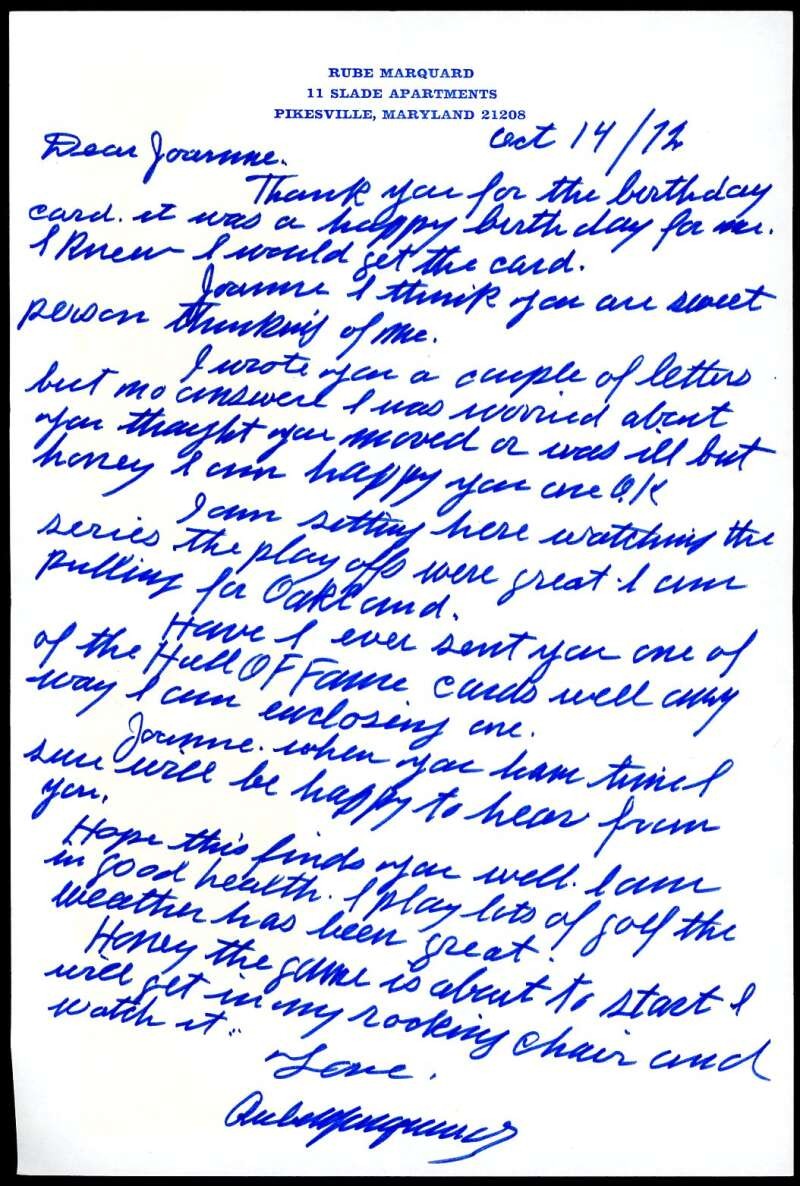 RUBE MARQUARD
11 SLADE APARTMENTS
PIKESVILLE, MARYLAND 21208
Oct 14/72
Dear Joanne.
Thank you for the birthday
card. it was a happy birthday for me.
I knew I would get the card.
Joanne I think you are sweet
person thinking of me.
I wrote you a couple of letters
but no answere I was worried about
you thought you moved or was ill but
honey I am happy you are O.K
I am setting here watching the
series the play offs were great. I am
pulling for Oakland.
Have I ever sent you one of
of the Hall OF Fame cards well any
way I am enclosing one.
Joanne. when you have time I
sure will be happy to hear from
you.
Hope this finds you well. I am
in good health. I play lots of golf the
weather has been great.
Honey the game is about to start I
will get in my rocking chair and
watch it..
Love.
Rube Marquard